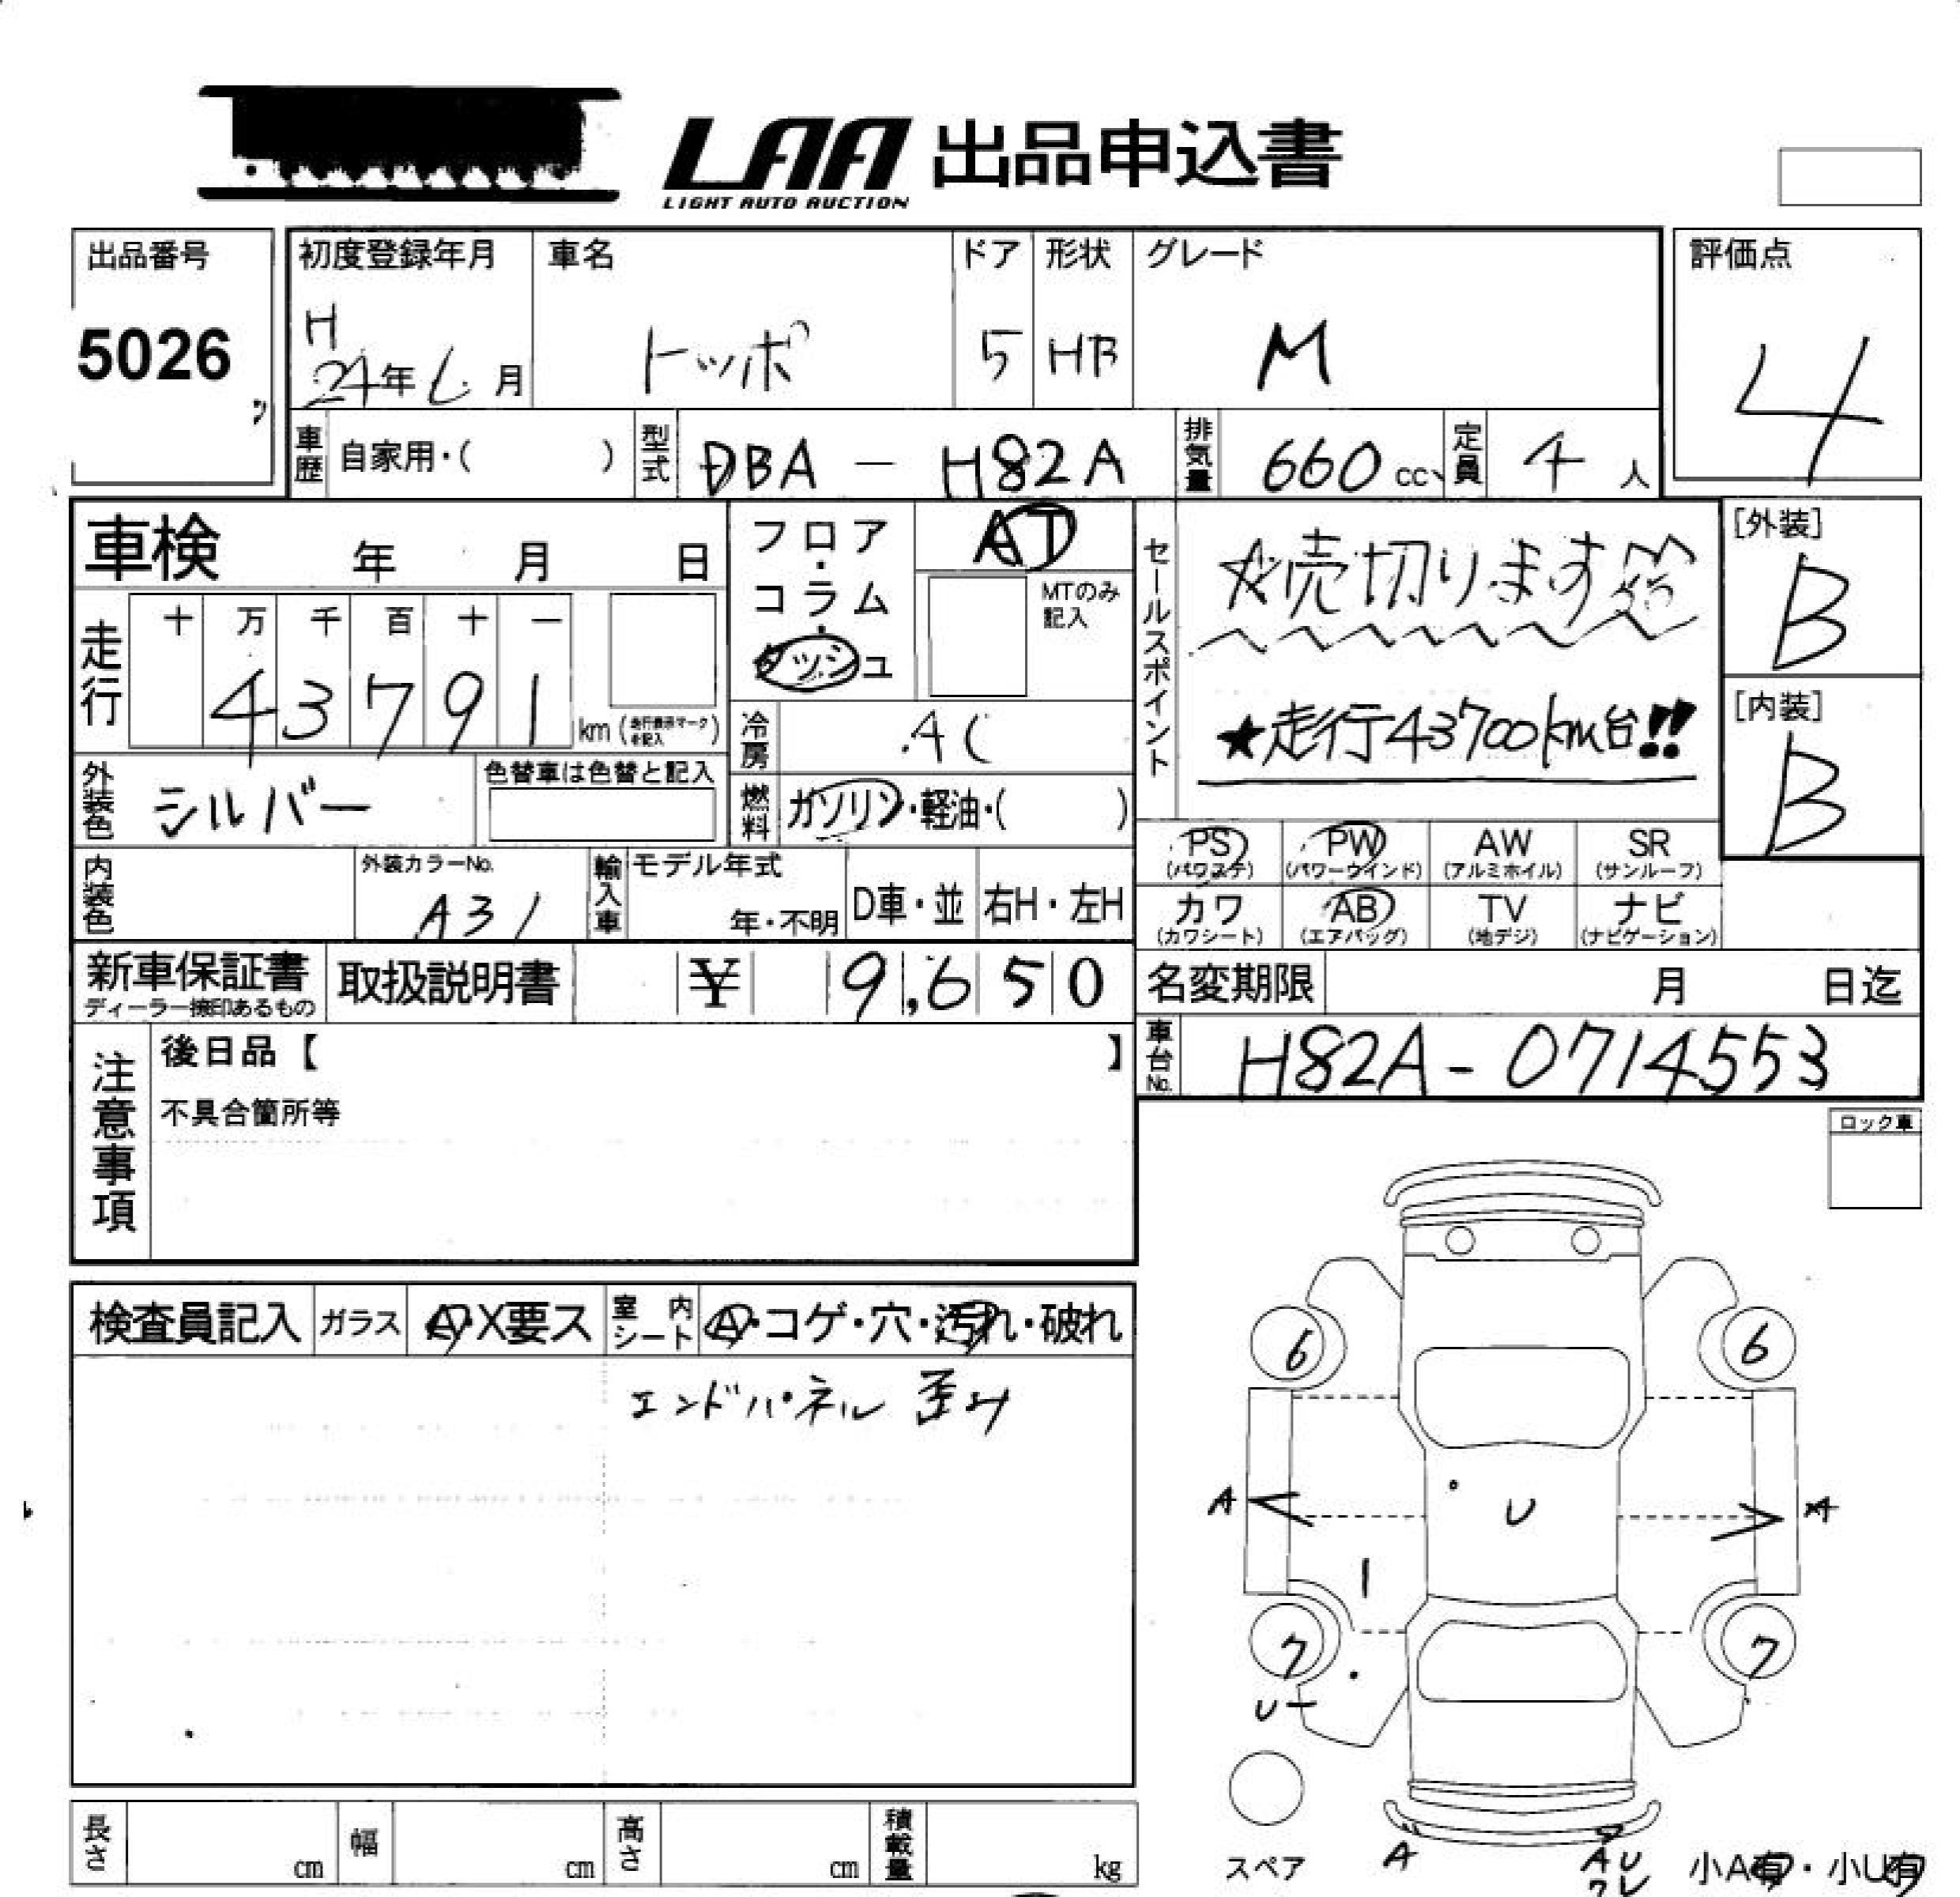 LAA 出品申込書
LIGHT AUTO AUCTION
出品番号
5026
初度登録年月
H
24年6月
車名
トッポ
ドア
5
形状
HB
グレード
M
評価点
4
車歴 自家用・( )
型式 DBA - H82A
排気量 660 cc
定員 4 人
車検 年 月 日
走行
十 万 千 百 十 一
43791
km (走行表示マーク
を記入)
フロア
・
コラム
・
ダッシュ
AT
MTのみ
記入
冷房 AC
燃料 ガソリン・軽油・( )
セールスポイント
☆売切ります
★走行43700km台!!
[外装]
B
[内装]
B
外装色 シルバー
色替車は色替と記入
内装色
外装カラーNo.
A31
輸入車
モデル年式
年・不明
D車・並
右H・左H
PS
(パワステ)
PW
(パワーウインド)
AW
(アルミホイル)
SR
(サンルーフ)
カワ
(カワシート)
AB
(エアバッグ)
TV
(地デジ)
ナビ
(ナビゲーション)
新車保証書
ディーラー捺印あるもの
取扱説明書
¥ 9,650
名変期限 月 日迄
車台No. H82A-0714553
注意事項
後日品【 】
不具合箇所等
ロック車
検査員記入
ガラス
A・X要ス
室内シート
A・コゲ・穴・汚れ・破れ
エンドパネル 歪み
6
6
A
U
A
7
7
U
スペア
A
A U
ワレ
小A有・小U有
長さ cm
幅 cm
高さ cm
積載量 kg